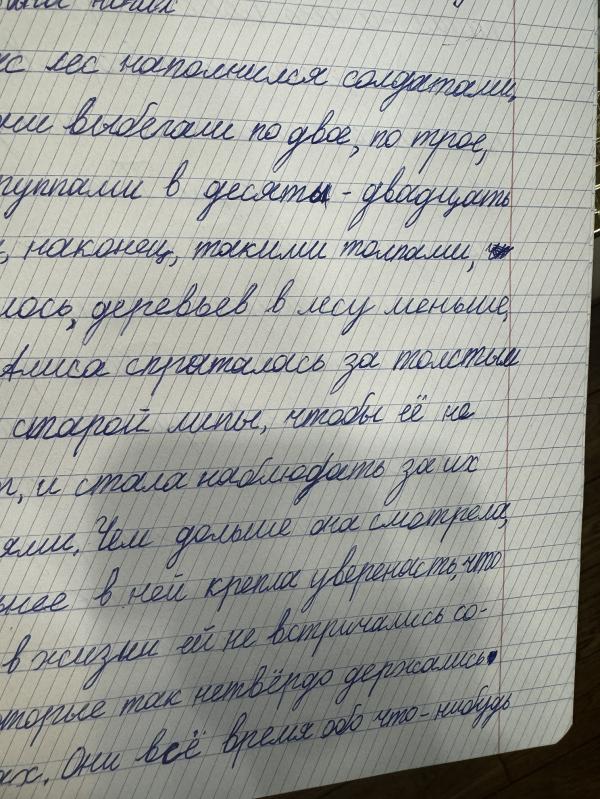 с лес наполнился солдатами,
ни выбегали по двое, по трое,
руппами в десять - двадцать
, наконец, такими толпами,
лось, деревьев в лесу меньше,
Алиса спряталась за толстым
старой липы, чтобы её не
, и стала наблюдать за их
ями. Чем дольше она смотрела,
нее в ней крепла увереность, что
в жизни ей не встричались со-
оторые так нетвёрдо держались
ах. Они всё время обо что-нибудь